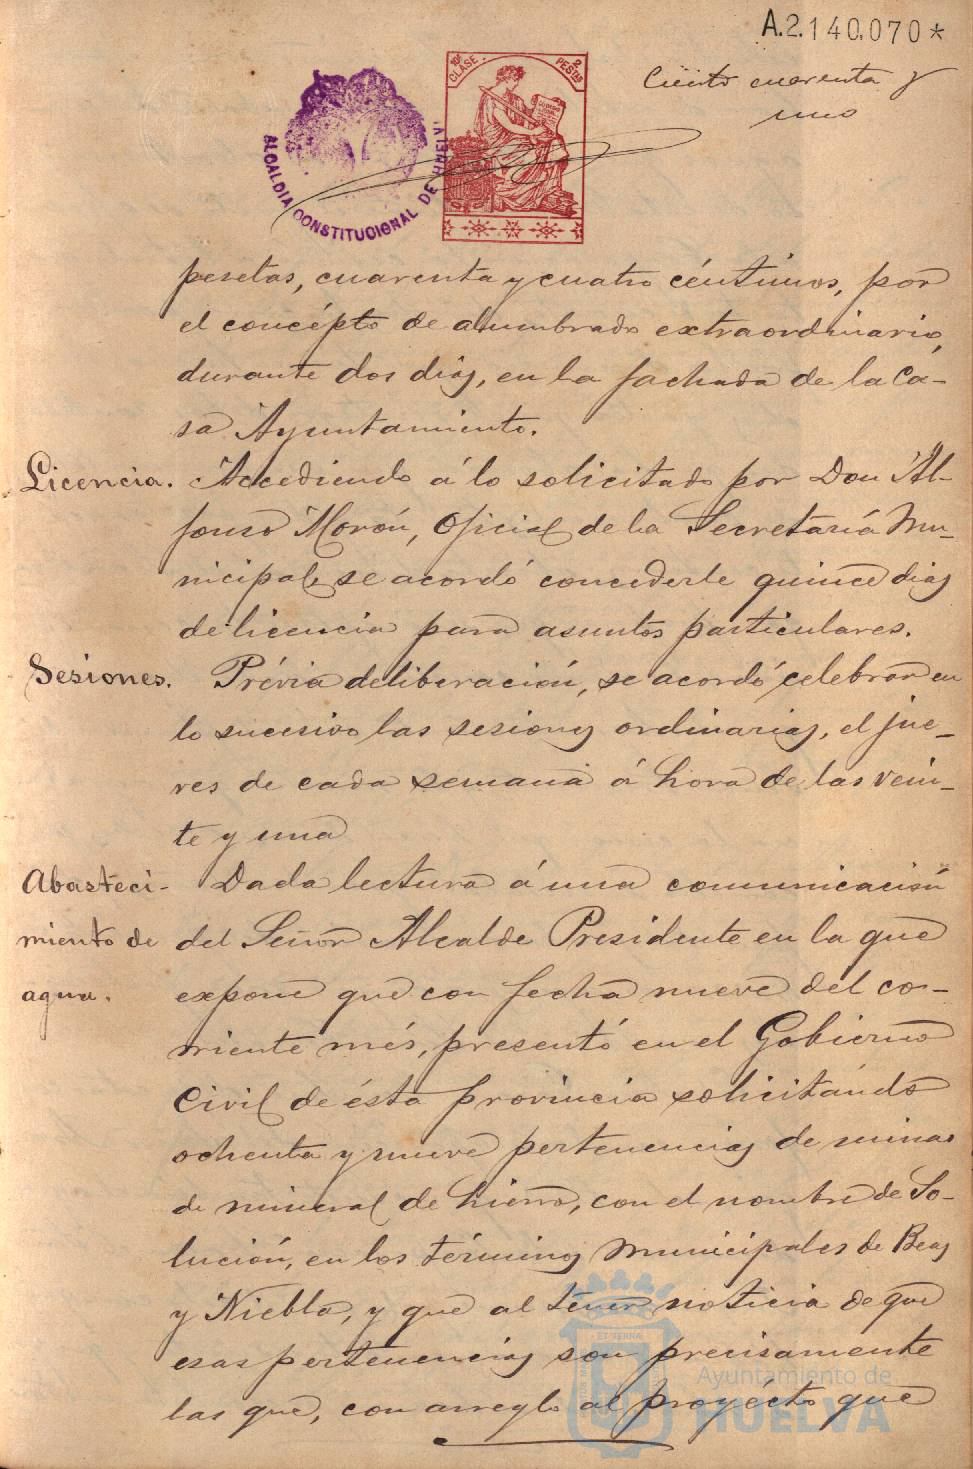 A.2.140.070*
Ciento cuarenta y
uno
10ª CLASE
2 PESTAS
ALCALDIA CONSTITUCIONAL DE HUELVA
pesetas, cuarenta y cuatro céntimos, por
el concépto de alumbrado extraordinario,
durante dos dias, en la fachada de la Ca-
sa Ayuntamiento.
Licencia. Accediendo á lo solicitado por Don Al-
fonso Morón, Oficial de la Secretaría Mu-
nicipal, se acordó concederle quince dias
de licencia para asuntos particulares.
Sesiones. Prévia deliberación, se acordó celebrar en
lo sucesivo las sesiones ordinarias, el jue-
ves de cada semana á hora de las vein-
te y una
Abasteci- Dada lectura á una comunicación
miento de del Señor Alcalde Presidente en la que
agua. expone que con fecha nueve del co-
rriente més, presentó en el Gobierno
Civil de ésta provincia solicitando
ochenta y nueve pertenencias de minas
de mineral de hierro, con el nombre de So-
lución, en los términos municipales de Beas
y Niebla, y que al tener noticia de que
esas pertenencias son precisamente
las que, con arreglo al proyécto que
Ayuntamiento de
HUELVA